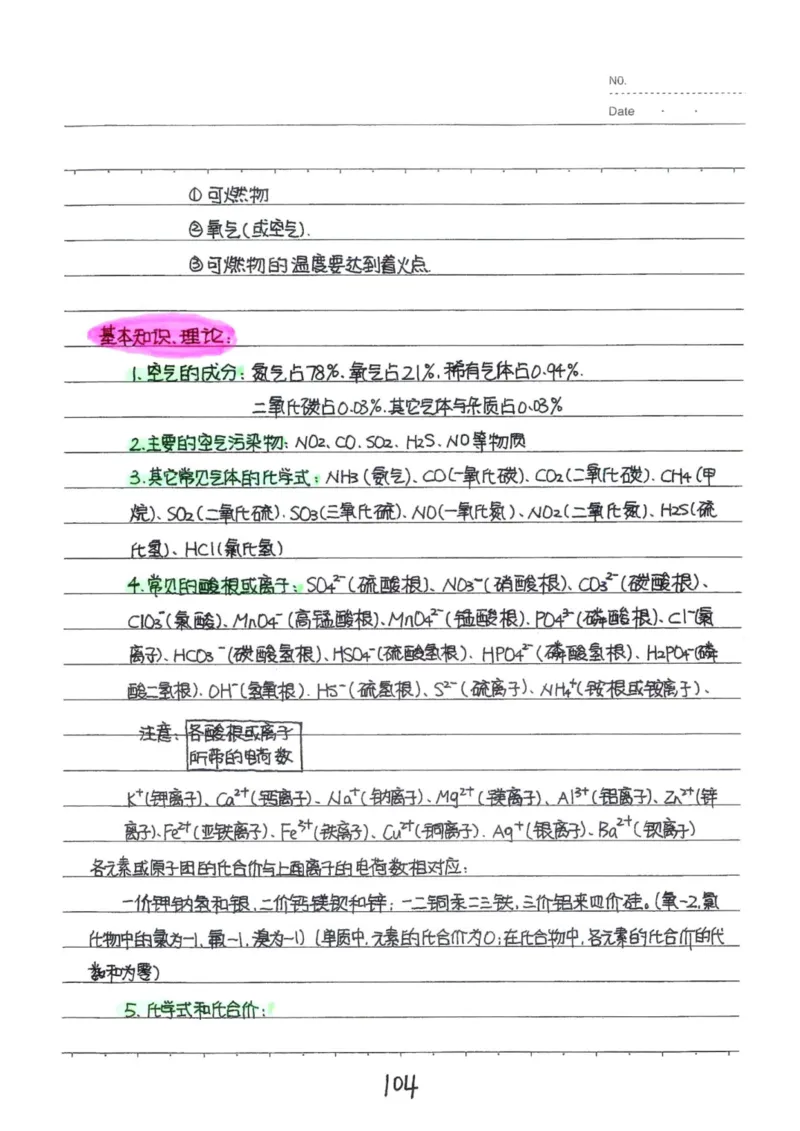 NO.
Date . .
① 可燃物
② 氧气(或空气).
③ 可燃物的温度要达到着火点.
基本知识、理论:
1. 空气的成分: 氮气占78%、氧气占21%、稀有气体占0.94%.
二氧化碳占0.03%.其它气体与杂质占0.03%
2.主要的空气污染物: NO2、CO、SO2、H2S、NO等物质
3.其它常见气体的化学式: NH3(氨气)、CO(一氧化碳)、CO2(二氧化碳)、CH4(甲
烷)、SO2(二氧化硫)、SO3(三氧化硫)、NO(一氧化氮)、NO2(二氧化氮)、H2S(硫
化氢)、HCl(氯化氢)
4.常见的酸根或离子: SO4²⁻(硫酸根)、NO3⁻(硝酸根)、CO3²⁻(碳酸根)、
ClO3⁻(氯酸)、MnO4⁻(高锰酸根)、MnO4²⁻(锰酸根)、PO4³⁻(磷酸根)、Cl⁻(氯
离子)、HCO3⁻(碳酸氢根)、HSO4⁻(硫酸氢根)、HPO4²⁻(磷酸氢根)、H2PO4⁻(磷
酸二氢根)、OH⁻(氢氧根)、HS⁻(硫氢根)、S²⁻(硫离子)、NH4⁺(铵根或铵离子)、
注意: 各酸根或离子
所带的电荷数
K⁺(钾离子)、Ca²⁺(钙离子)、Na⁺(钠离子)、Mg²⁺(镁离子)、Al³⁺(铝离子)、Zn²⁺(锌
离子)、Fe²⁺(亚铁离子)、Fe³⁺(铁离子)、Cu²⁺(铜离子)、Ag⁺(银离子)、Ba²⁺(钡离子)
各元素或原子团的化合价与上面离子的电荷数相对应:
一价钾钠氢和银,二价钙镁钡和锌; 一二铜汞二三铁,三价铝来四价硅。(氧-2,氯
化物中的氯为-1,氟-1,溴为-1)(单质中,元素的化合价为0;在化合物中,各元素的化合价的代
数和为零)
5、化学式和化合价:
104